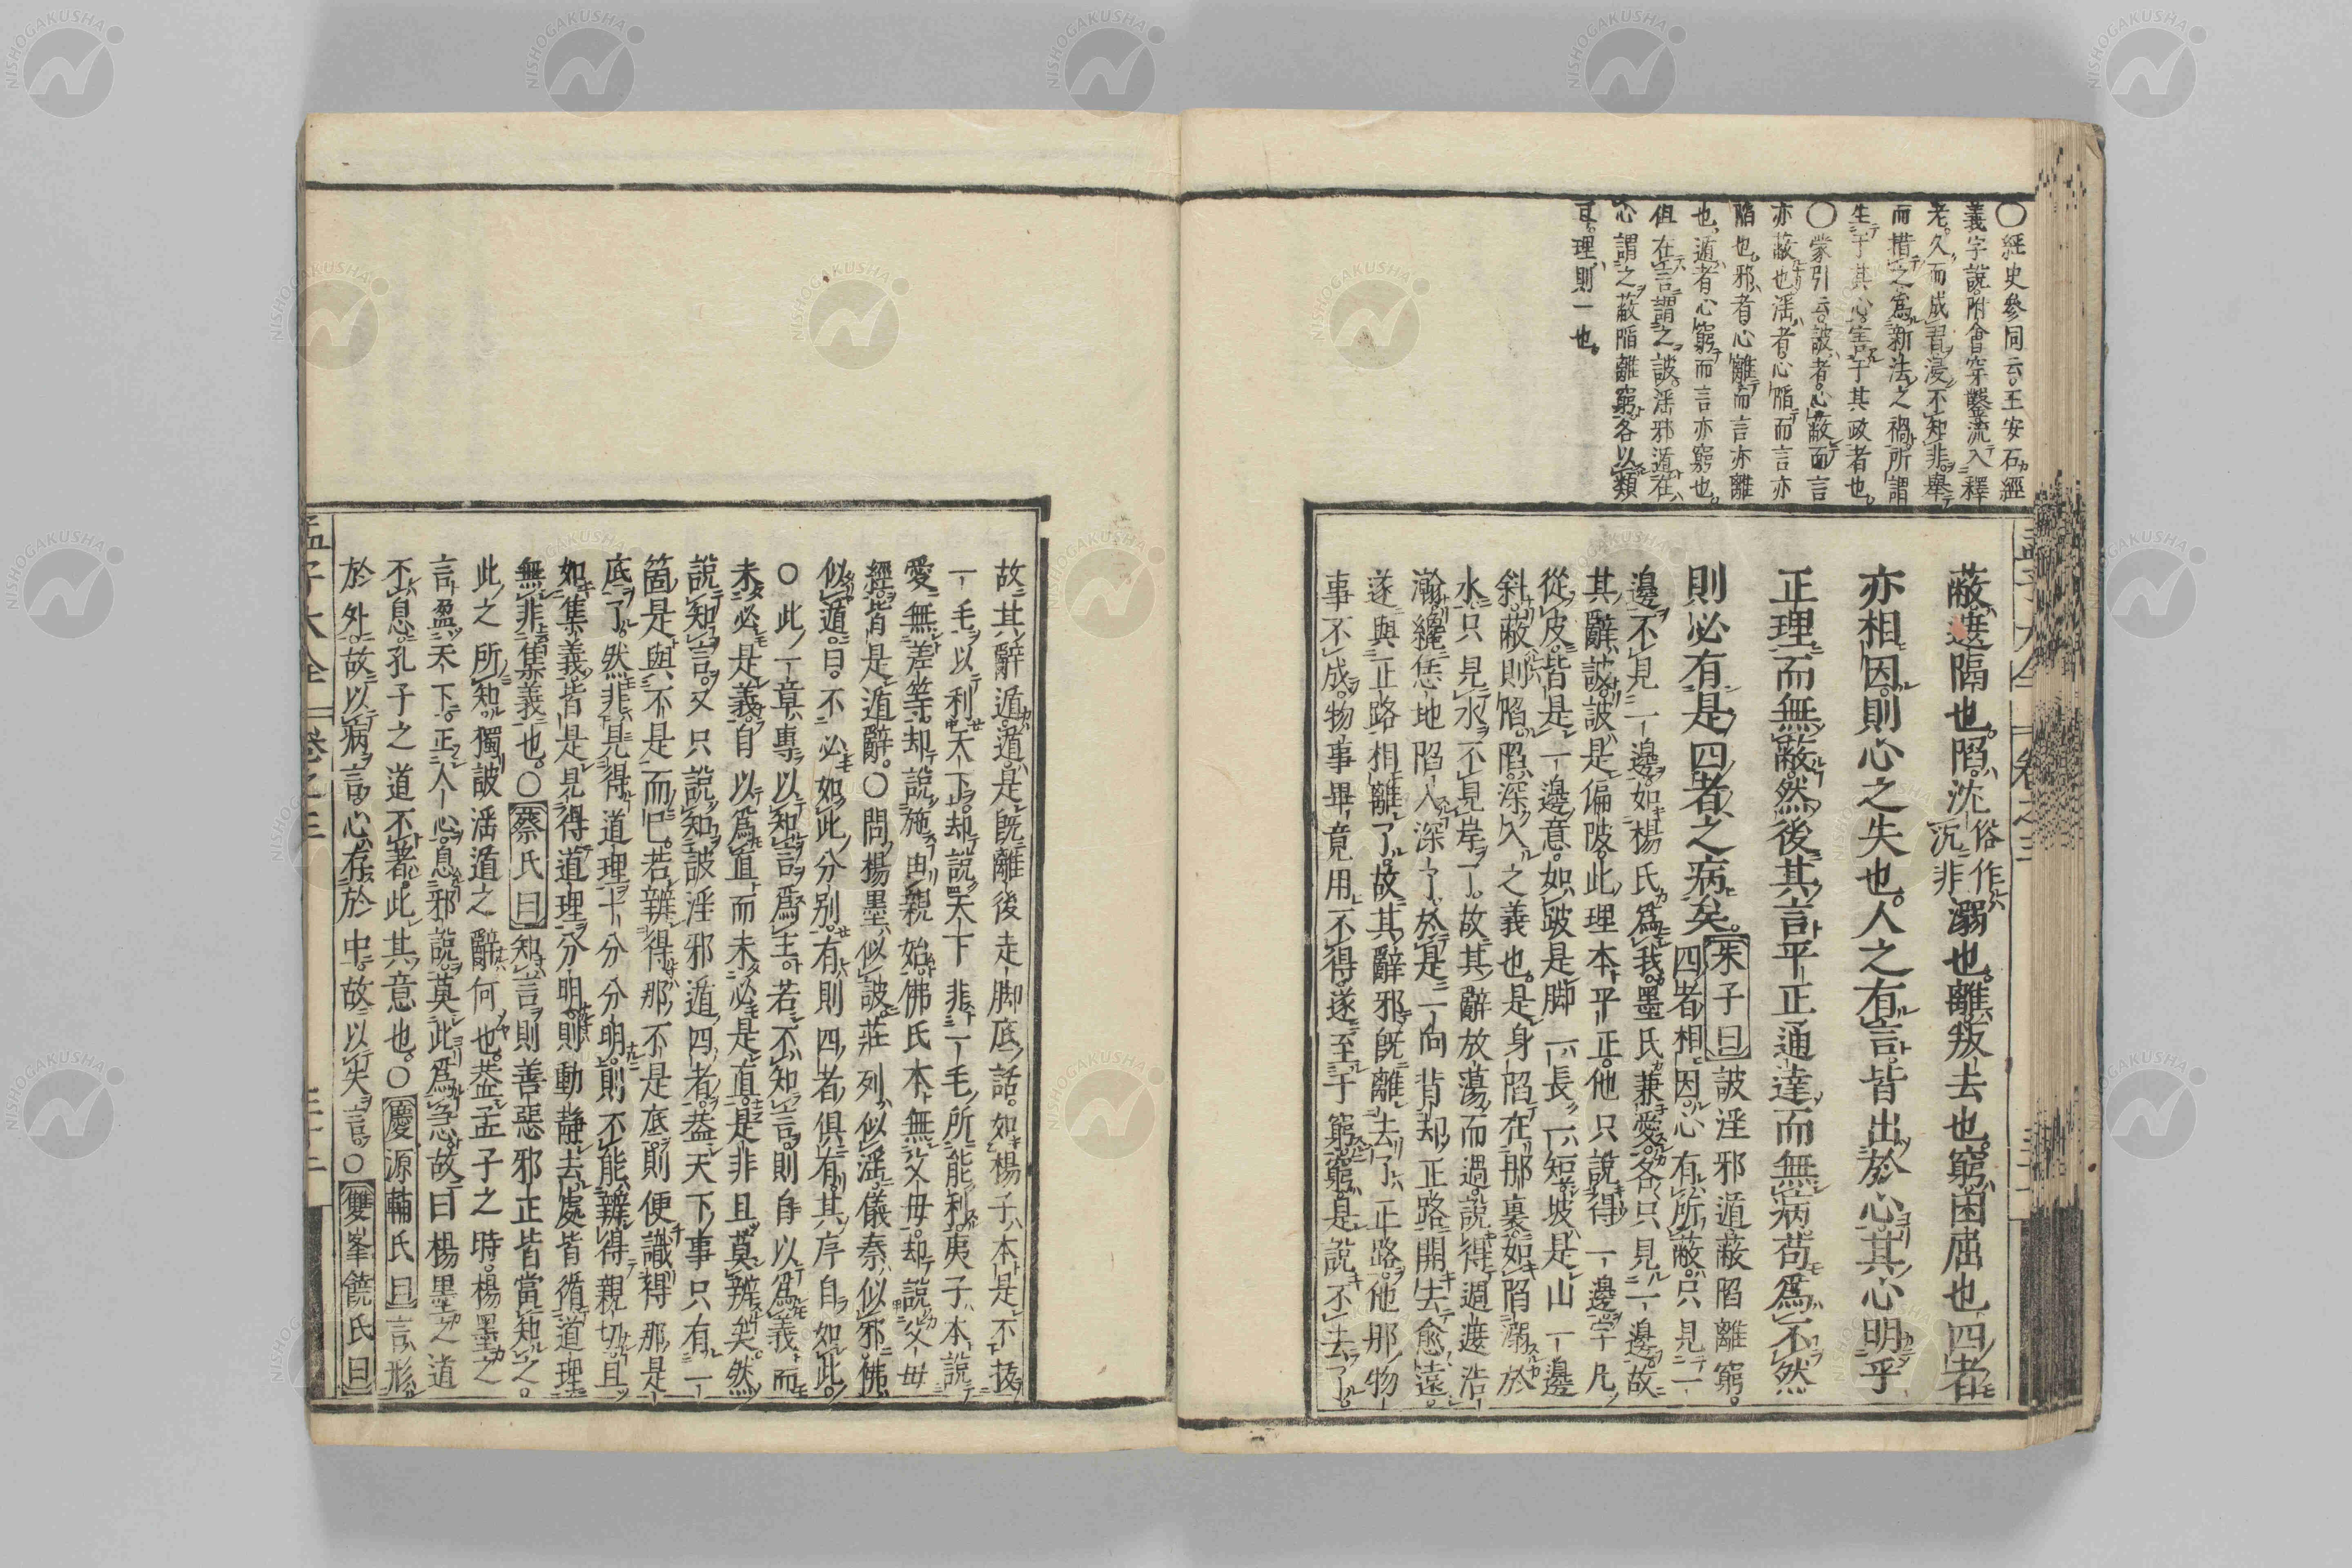 〇經史參同云王安石經
義字說附會穿鑿流入釋
老久而成習浸不知非舉
而措之爲新法之禍所謂
生于其心害于其政者也
〇蒙引云詖者心蔽而言
亦蔽也淫者心陷而言亦
陷也邪者心離而言亦離
也遁者心窮而言亦窮也
但在言謂之詖淫邪遁在
心謂之蔽陷離窮各以類
耳理則一也
蔽遮隔也陷沈俗作沉非溺也離叛去也窮困屈也四者
亦相因則心之失也人之有言皆出於心其心明乎
正理而無蔽然後其言平正通達而無病苟爲不然
則必有是四者之病矣朱子曰詖淫邪遁蔽陷離窮
四者相因心有所蔽只見一
邊不見一邊如楊氏爲我墨氏兼愛各只見一邊故
其辭詖詖是偏陂此理本平正他只說得一邊字凡
從皮皆是一邊意如跛是脚一長一短坡是山一邊
斜蔽則陷陷深入之義也是身陷在那裏如陷溺於
水只見水不見岸了故其辭放蕩而過說得週遮浩
瀚纔恁地陷入深了於是一向背却正路開去愈遠
遂與正路相離了故其辭邪旣離去了正路他那物
事不成物事畢竟用不得遂至于窮窮是說不去了
故其辭遁遁是旣離後走脚底話如楊子本是不拔
一毛以利天下却說天下非一毛所能利夷子本說
愛無差等却說施由親始佛氏本無父母却說父母
經皆是遁辭〇問楊墨似詖莊列似淫儀秦似邪佛
似遁曰不必如此分别有則四者俱有其序自如此
〇此一章專以知言爲主若不知言則自以爲義而
未必是義自以爲直而未必是直是非且莫辨矣然
說知言又只說知詖淫邪遁四者葢天下事只有一
箇是與不是而已若辨得那不是底則便識得那是
底了然非見得道理十分分明則不能辨得親切且
如集義皆是見得道理分明則動静去處皆循道理
無非集義也〇蔡氏曰知言則善惡邪正皆當知之
此之所知獨詖淫遁之辭何也葢孟子之時楊墨之
言盈天下正人心息邪說莫此爲急故曰楊墨之道
不息孔子之道不著此其意也〇慶源輔氏曰言形
於外故以病言心存於中故以失言〇雙峯饒氏曰
孟子大全 卷之三